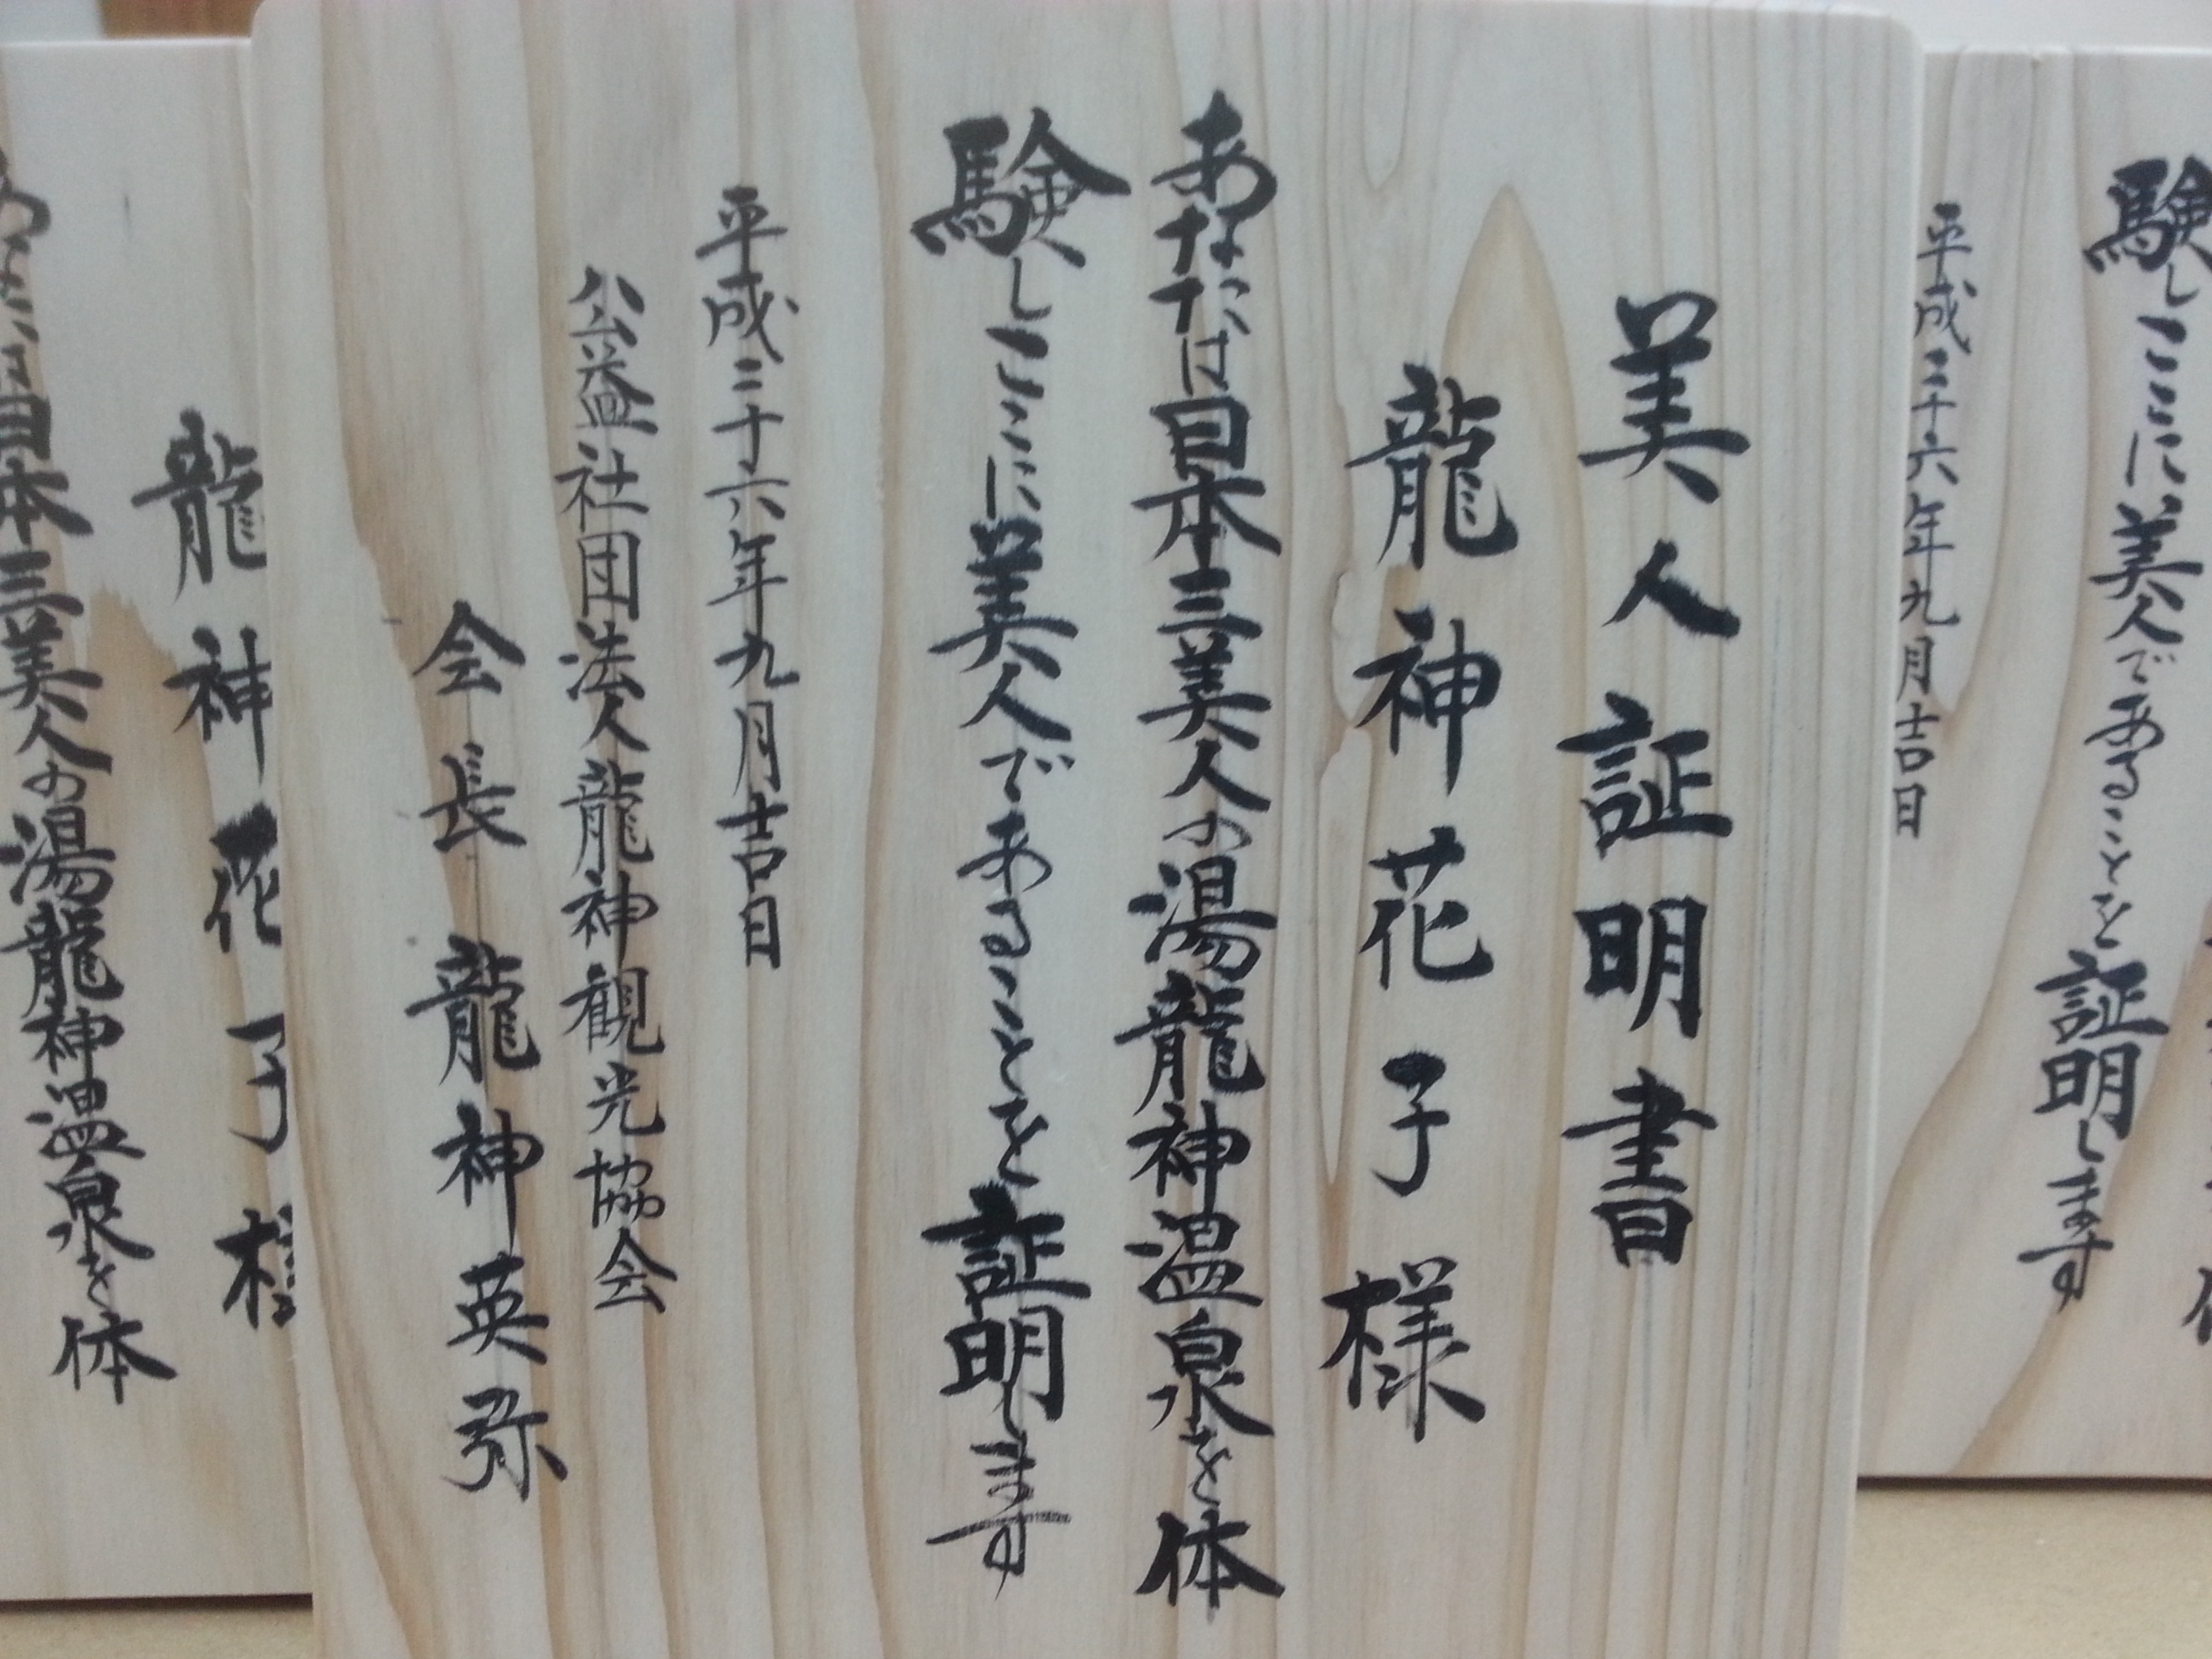 験しここに美人であることを証明します
平成二十六年九月吉日
美人証明書
龍神花子様
あなたは日本三美人の湯龍神温泉を体
験しここに美人であることを証明します
平成二十六年九月吉日
公益社団法人龍神観光協会
会長 龍神英弥
龍神花子様
あなたは日本三美人の湯龍神温泉を体